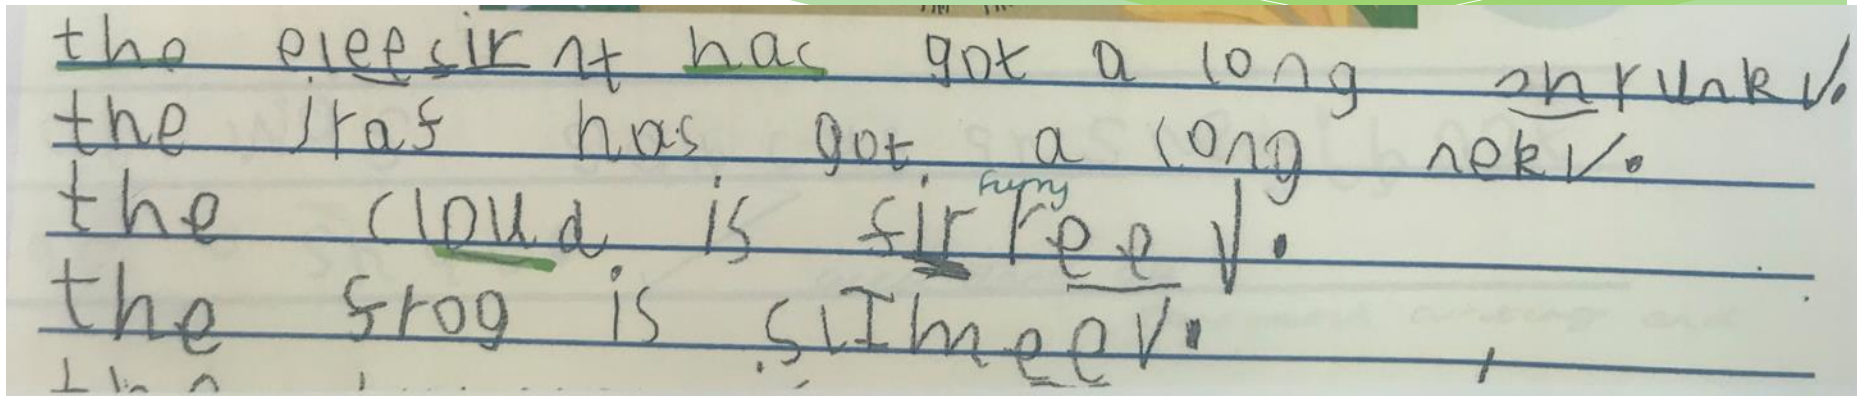 the eleefirnt has got a long shrunk.
the jraf has got a long nek.
furry
the cloud is firree.
the frog is slImee.